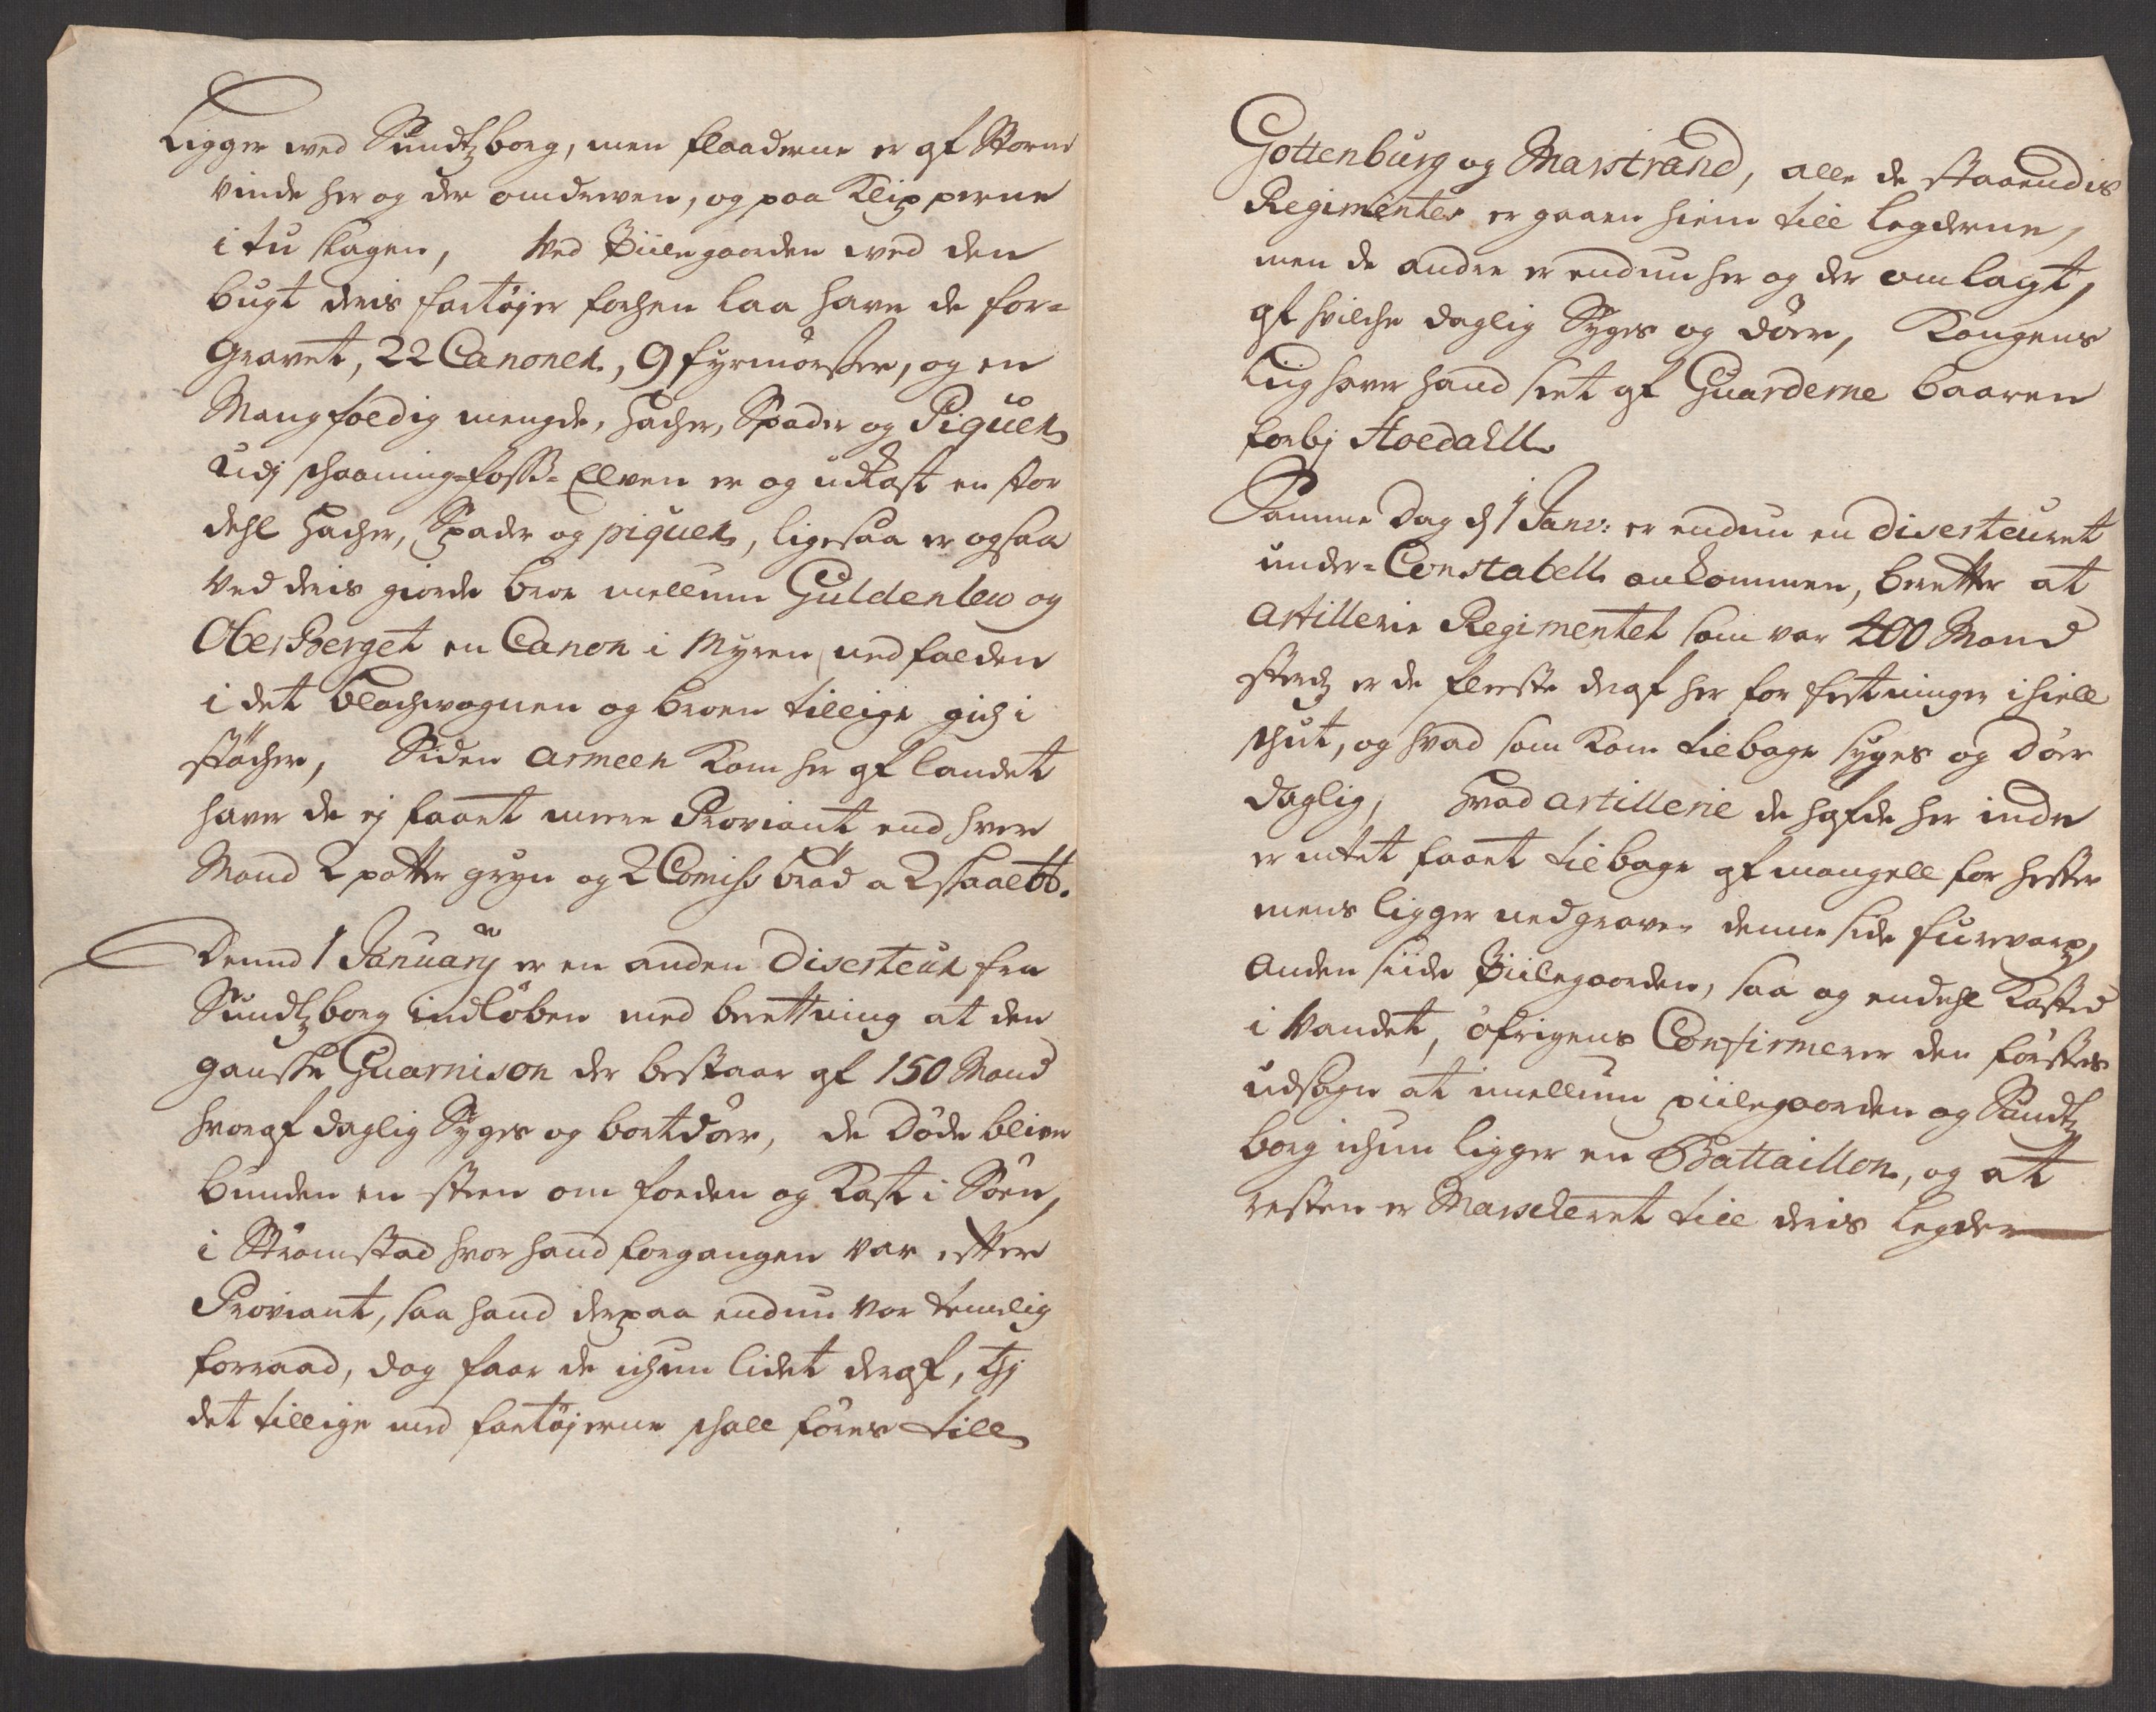 Ligger wed Sundtzborg, men flaaderne er af Storm
vinde her og der omdrewen, og paa Klipperne
i tu slagen, Ved Piilegaarden wed den
bugt deris fartøyer forhen laa have de for-
Gravet, 22 Canoner, 9 fyrmörsser, og en
Mangfoldig mengde, Hacher, Spader og Piquer
Udj schaaning-foss-Elven er og udkast en stor
dehl Hacher, Spader og piquer, ligesaa er ogsaa
Ved deris giorde broe mellum Guldenlew og
OberBerget en Canon i Myren nedfalden
i det blochwagnen og broen tillige gich i
støcher, Siden armeen kom her af landet
haver de ej faaet meere Proviant end hver
Mand 2 potter gryn og 2 Comiss brød a 2 skaal tt.
Dennd 1 January er en anden Diserteur fra
Sundtzborg indløben med berettning at den
gandske Guarnison der bestaar af 150 Mand
hvoraf daglig Syges og bortdöer, de Døde bliver
bunden en steen om foeden og kast i Söen,
i Strømstad hvor hand forgangen var effter
Proviant, saa hand derpaa endnu var temelig
forraad, dog faar de ichun lidet deraf, thj
det tillige med fartøyerne schall føres till
Gottenburg og Marstrand, alle de staaendis
Regimenter er gaaen hiem till legderne,
men de andre er endnu her og der omlagt,
af hvilche daglig Syges og döer, Kongens
Liig haver hand seet af Guarderne baaren
forbj Hoedahll.
Samme Dag d 1 Janv: er endnu en diserteuret
under-Constabell ankommen, beretter at
artillerie Regimentet som var 400 Mand
sterch er de fleeste deraf her for festninger ihiell
schut, og hvad som kom tilbage syges og döer
daglig, hvad artillerie de hafde her inde
er intet faaet tilbage af mangell for hester
mens ligger nedgraven denne side
anden siide Piilegaarden, saa og endehl kasted
i Vandet, øfrigens Confirmerer den förstes
udsagn at imellum piilegaarden og Sundtz
borg ichun ligger en Battaillon, og at
resten er Marscheret till deris legder